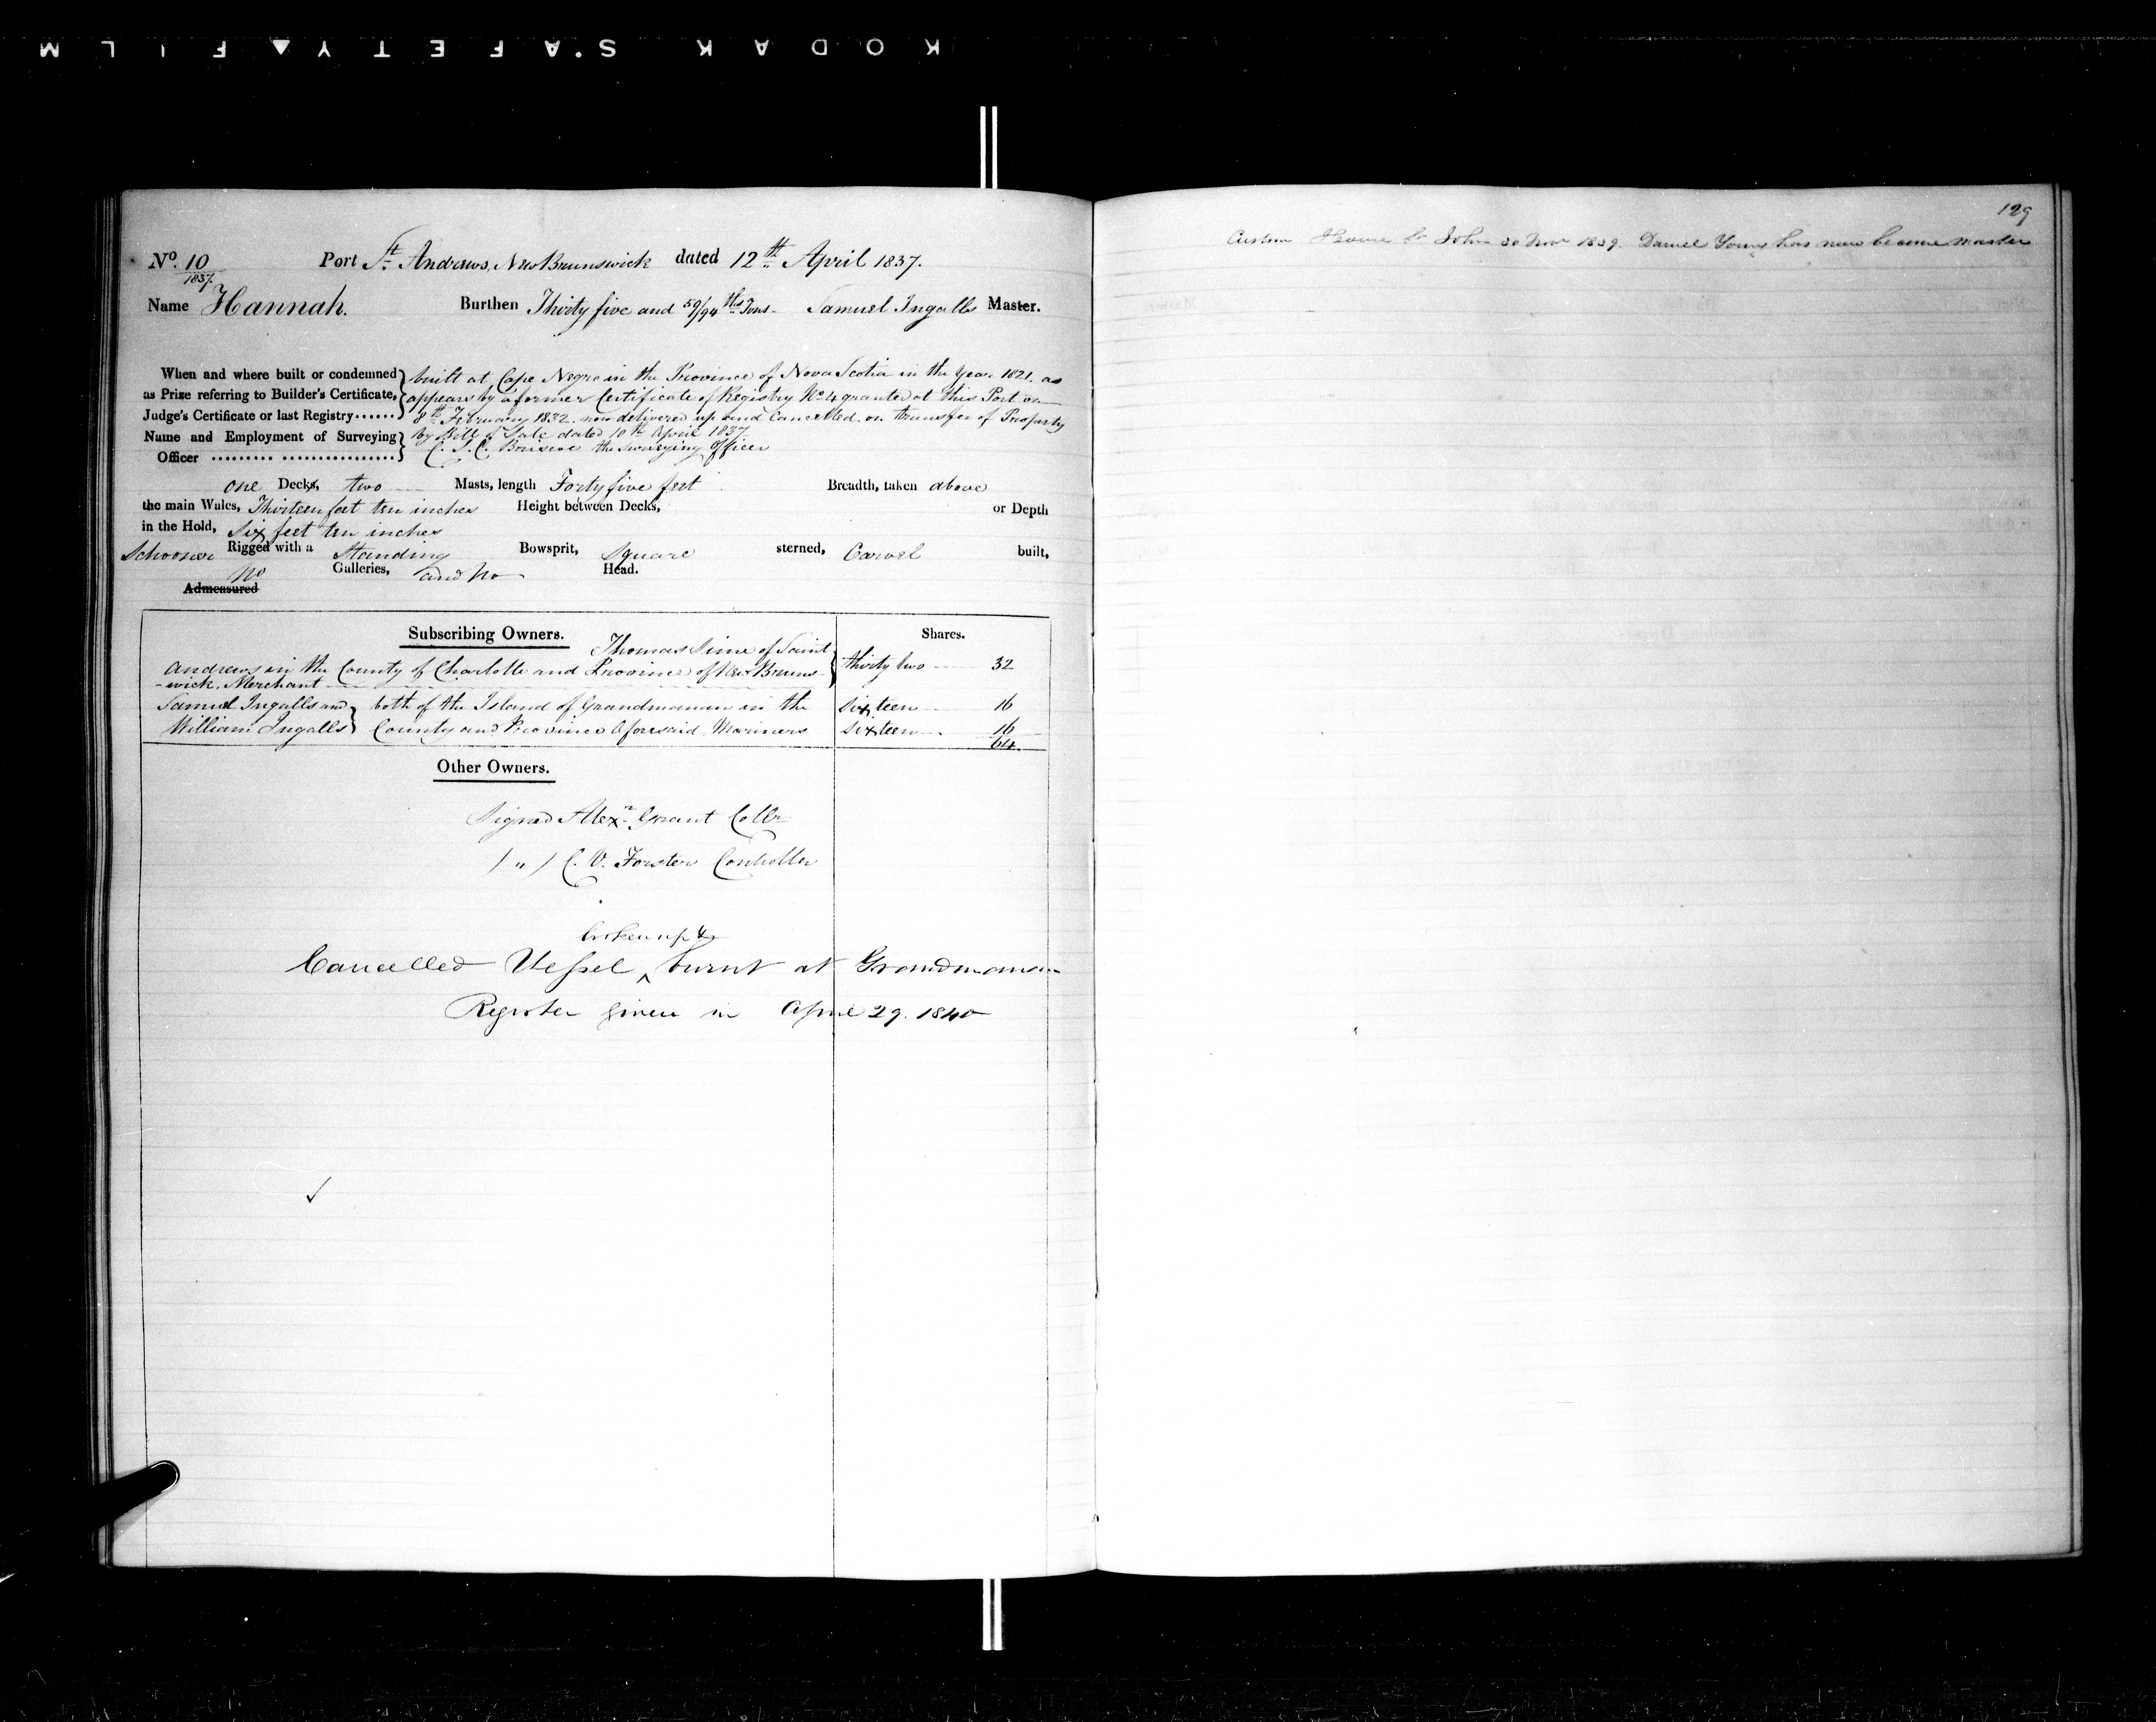 KODAK SAFETY FILM
No. 10
1837.
Port St. Andrews, New Brunswick dated 12th April 1837.
Name Hannah. Burthen Thirty five and 59/94ths Tons. Samuel Ingalls Master.
When and where built or condemned built at Cape Negro in the Province of Nova Scotia in the Year 1821. as
as Prize referring to Builder's Certificate, appears by a former Certificate of Registry No. 4 granted at this Port on
Judge's Certificate or last Registry...... 8th February 1832. now delivered up and Cancelled on transfer of Property
Name and Employment of Surveying by Bill of Sale dated 10th April 1837
Officer ......... ................ C. S. C. Briscoe the Surveying Officer
one Decks, two Masts, length Forty five feet Breadth, taken above
the main Wales, Thirteen feet ten inches Height between Decks, or Depth
in the Hold, Six feet ten inches
Schooner Rigged with a Standing Bowsprit, Square sterned, Carvel built,
no Galleries, and no Head.
Admeasured
Subscribing Owners. Shares.
Thomas Sime of Saint
Andrews in the County of Charlotte and Province of New Bruns- thirty two 32
-wick. Merchant
Samuel Ingalls and both of the Island of Grandmanan in the Sixteen 16
William Ingalls County and Province Aforesaid, Mariners Sixteen 16
64
Other Owners.
Signed Alexr Grant Collr
( " ) C. V. Forster Controller
broken up &
Cancelled Vessel ^ burnt at Grandmanan
Register given in April 29. 1840
129
Custom House St John 30 Novr 1839. Daniel Young has now become Master